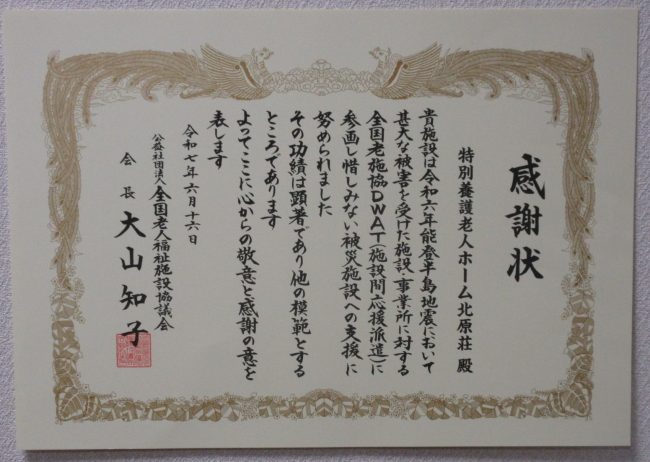 感謝状
特別養護老人ホーム北原荘 殿
貴施設は令和六年能登半島地震において
甚大な被害を受けた施設・事業所に対する
全国老施協DWAT(施設間応援派遣)に
参画し惜しみない被災施設への支援に
努められました
その功績は顕著であり他の模範とする
ところであります
よってここに心からの敬意と感謝の意を
表します
令和七年六月十六日
公益社団法人全国老人福祉施設協議会
会長 大山知子